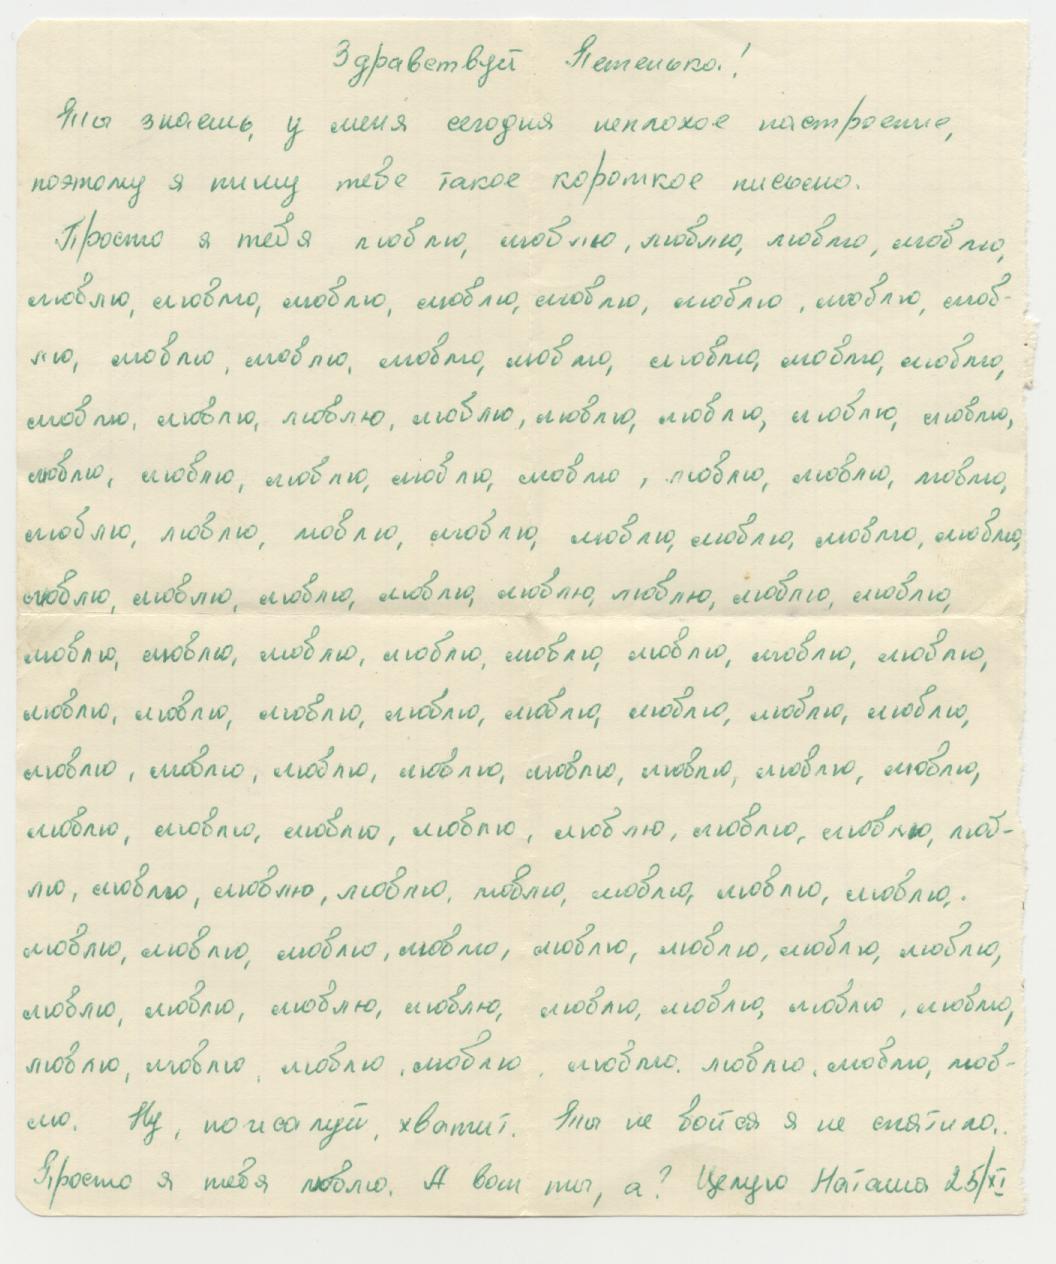 Здравствуй Петенька!
Ты знаешь, у меня сегодня неплохое настроение,
поэтому я пишу тебе такое короткое письмо.
Просто я тебя люблю, люблю, люблю, люблю, люблю,
люблю, люблю, люблю, люблю, люблю, люблю, люблю, люб-
лю, люблю, люблю, люблю, люблю, люблю, люблю, люблю,
люблю, люблю, люблю, люблю, люблю, люблю, люблю, люблю,
люблю, люблю, люблю, люблю, люблю, люблю, люблю, люблю,
люблю, люблю, люблю, люблю, люблю, люблю, люблю, люблю,
люблю, люблю, люблю, люблю, люблю, люблю, люблю, люблю,
люблю, люблю, люблю, люблю, люблю, люблю, люблю, люблю,
люблю, люблю, люблю, люблю, люблю, люблю, люблю, люблю,
люблю, люблю, люблю, люблю, люблю, люблю, люблю, люблю,
люблю, люблю, люблю, люблю, люблю, люблю, люблю, люб-
лю, люблю, люблю, люблю, люблю, люблю, люблю, люблю,.
люблю, люблю, люблю, люблю, люблю, люблю, люблю, люблю,
люблю, люблю, люблю, люблю, люблю, люблю, люблю, люблю,
люблю, люблю, люблю, люблю, люблю. люблю, люблю, люб-
лю. Ну, пожалуй, хватит. Ты не бойся я не спятила.
Просто я тебя люблю. А вот ты, а? Целую Наташа 25/XI